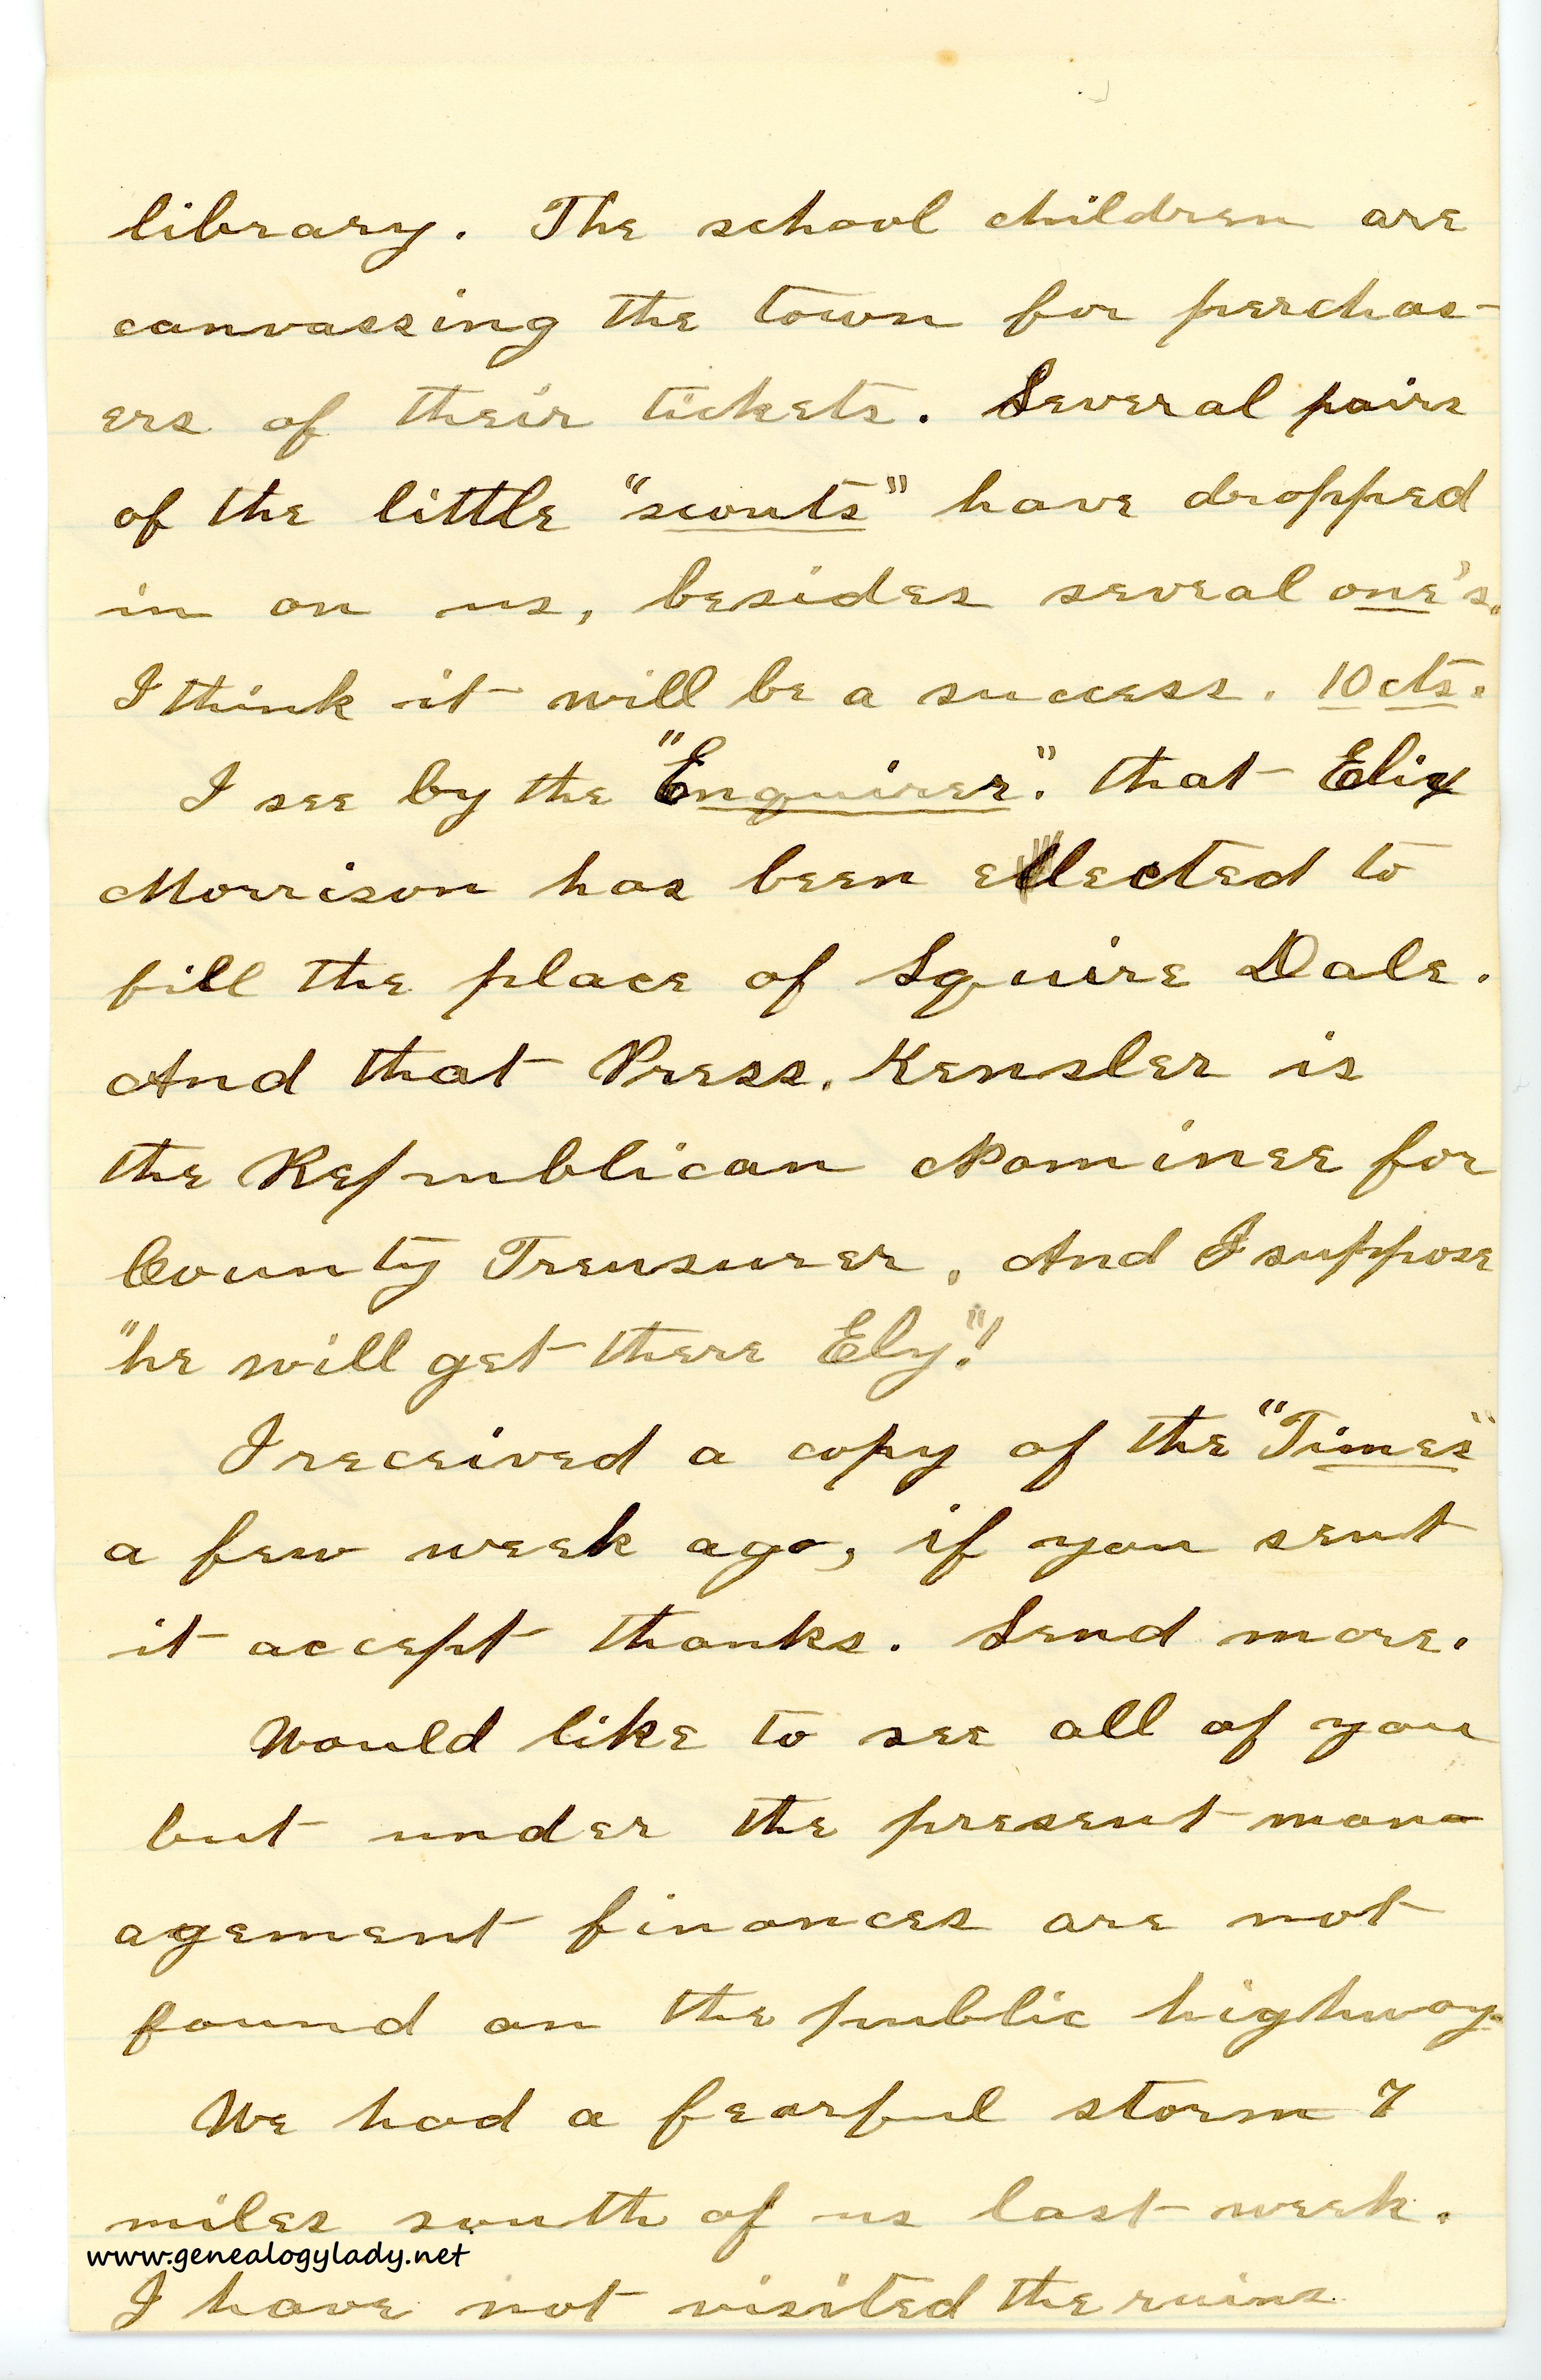 library. The school children are
canvassing the town for perchas-
ers of their tickets. Several pairs
of the little "scouts" have dropped
in on us, besides several one's.
I think it will be a success. 10 cts.
I see by the "Enquirer". that
Morrison has been ellected to
fill the place of Squire Dale.
And that Press. Kensler is
the Republican Nominee for
County Treusurer. And I suppose
"he will get there Ely"!
I received a copy of the "Times"
a few week ago, if you sent
it accept thanks. Send more.
Would like to see all of you
but under the present man-
agement finances are not
found on the public highway.
We had a fearful storm 7
miles south of us last week.
www.genealogylady.net
I have not visited the ruins